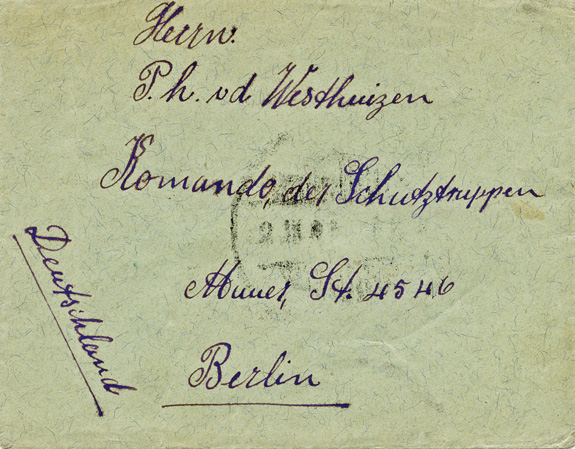 Herrn.
P. h. v d. Westhuizen
Komando, der Schutztruppen
Mauer, St. 45 46
Berlin
Deutschland